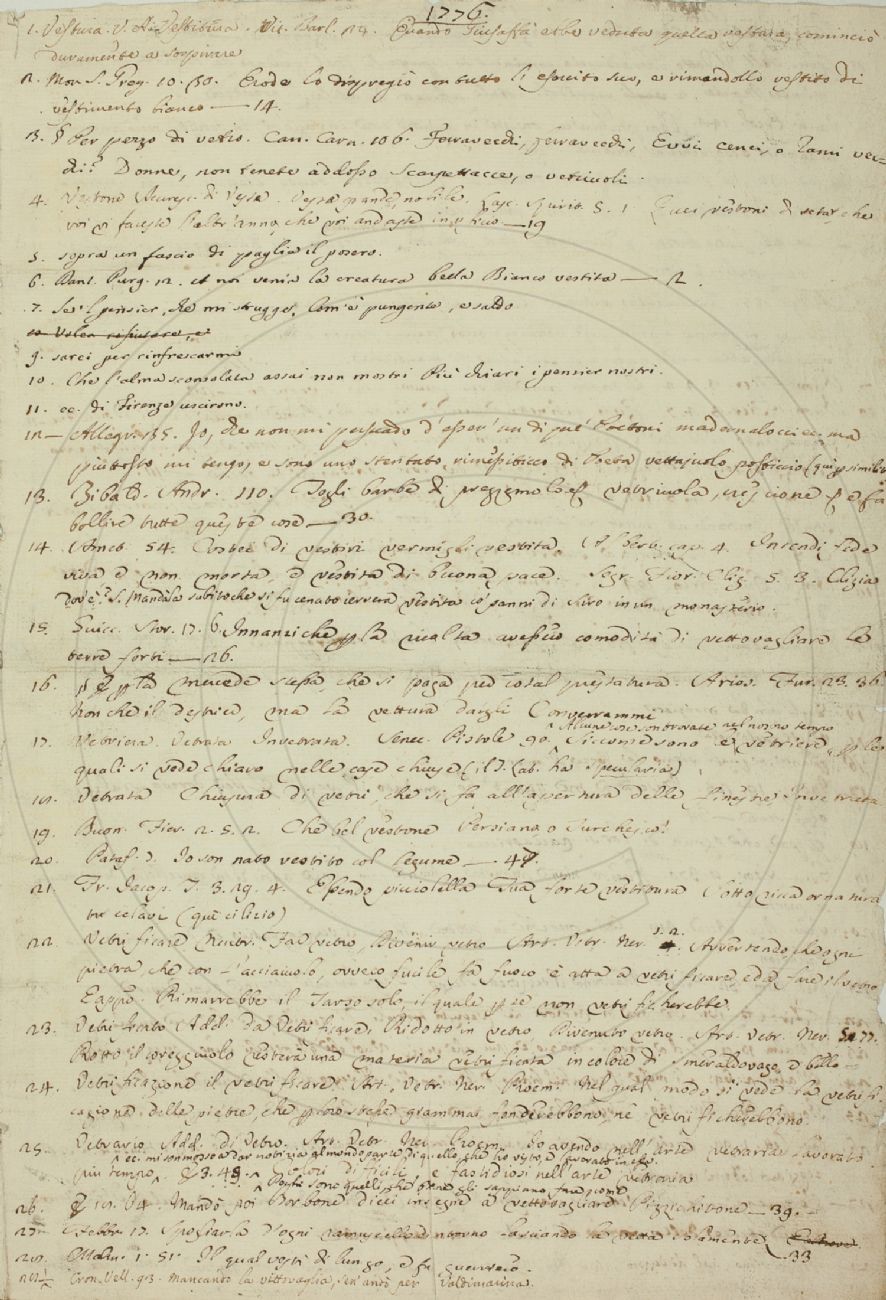 1776.
1. Vestura. V. A. Vestitura. Vit. Barl. 24. Quando Giusaffà ebbe veduta quella vestura, cominciò
duramente a sospirare
2. Mor. S. Greg. 10. 30. Erode lo dispregiò con tutto il esercito suo, e rimandollo vestito di
vestimento bianco — 14.
3. § Per pezzo di vetro. Can. Carn. 106. Ferravecchi, ferravecchi, Evvi cenci, o rami vec=
chi? Donne, non tenete addosso Scarpettacce, o vetriuoli.
4. Vestone Accresc. di Vesta. Vesta grande, nobile. Lasc. S. 1. Quei vestoni di seta, che
voi vi faceste l'altr'anno, che voi andaste in — 19
5. sopra un fascio di paglia il posero.
6. Dant. Purg. 12. A noi venia la creatura bella Bianco vestita — 2.
7. Se'l pensier, che mi strugge, Com'è pungente, e saldo
9. sarei per rinfrescarmi
10. Che l'alma sconsolata assai non mostri Più chiari i pensier nostri.
11. ec. di Firenze uscirono.
12 — Allegr. 35. Io, che non mi persuado d'esser'un di que' Poetoni madornalocci ec. ma
piuttosto mi tengo, e sono uno stentato, di Poeta vettajuolo posticcio (qui per similit.
13. Libr. Andr. 110. Togli barbe di prezzemolo e vetriuola, crescione e fa
bollire tutte queste cose — 30.
14. Amet. 54. Costei di vestiri vermigli vestita. cap. 4. Intendi fede
viva e non morta, e vestita di buona pace. Segr. Fior. Cliz. 5. 3. Clizia
dov'è? S. Mandala subitochè si fu cenato verrera vestita co' panni di Siro in un monasterio.
15. Guicc. Stor. 17. 6. Innanzichè la ricolta avessero comodità di vettovagliare le
terre forti — 26.
16. § la mercede stessa, che si paga per cotal prestatura. Arios. Fur. 23. 36.
Non che il destrier, ma la vettura dargli Converrammi
17. Vetriera. Vetrata Invetrata. Senec. Pistole 90. Alcune cose son trovate nel nostro tempo
Siccome sono le vetriere, per le
quali si vede chiaro nelle case chiuse (il T. Lat. ha specularia)
18. Vetrata Chiusura di vetri, che si fa all'apertura delle finestre Invetriata
19. Buon. Fier. 2. 5. 2. Che bel vestone Persiano, o Turchesco!
20. Pataf. 7. Io son nato vestito col legume — 47.
21. Fr. Jacop. T. 3. 29. 4. Essendo picciolella Tua forte vestitura Sotto ricca ornatura
tu celavi (qui cilicio)
22. Vetrificare Neutr. Far vetro, Divenir vetro Art. Vetr. Ner. 1. 2. Avvertendo, che ogni
pietra, che con l'acciaiuolo, ovvero fucile fa fuoco è atta a vetrificare, ed a fare il vetro
E appo. Rimarrebbe il Tarso solo, il quale per se non vetrificherebbe.
23. Vetrificato Add. da Vetrificare, Ridotto in vetro Divenuto vetro. Art. Vetr. Ner. 5. 77.
Rotto il correggiuolo resterà una materia vetrificata in colore di smeraldo vago, e bello
24. Vetrificazione il vetrificare. Art. Vetr. Ner. Proem. Nel qual modo si vede la vetrifi=
cazione delle pietre, che per loro stesse giammai fonderebbono, nè vetrificherebbono.
25. Vetrario Add. di Vetro. Art. Vetr. Ner. Proem. Io avendo nell'arte vetraria lavorato
ec. mi son mosso a dar notizia al mondo parte di quello, che ho visto, e sperato in essa.
più tempo. E 3. 48. Colori difficili, e fastidiosi nell'arte vetraria
Pochi sono quelli, che bene gli sappiano fare
26. E 18. 84. Mandò poi Borbone dieci insegne a vettovagliare Pizzichitone — 39.
27 — Febbr. 17. Spogliasi d'ogni ramuscello d'intorno lasciando la vetta solamente
33
28. Ottom. 1. 51. Il qual vestì di lungo, e fu guerriero.
28½ Cron. Vell. 93. Mancando la vittovaglia, sen'andò per Valdimarina.